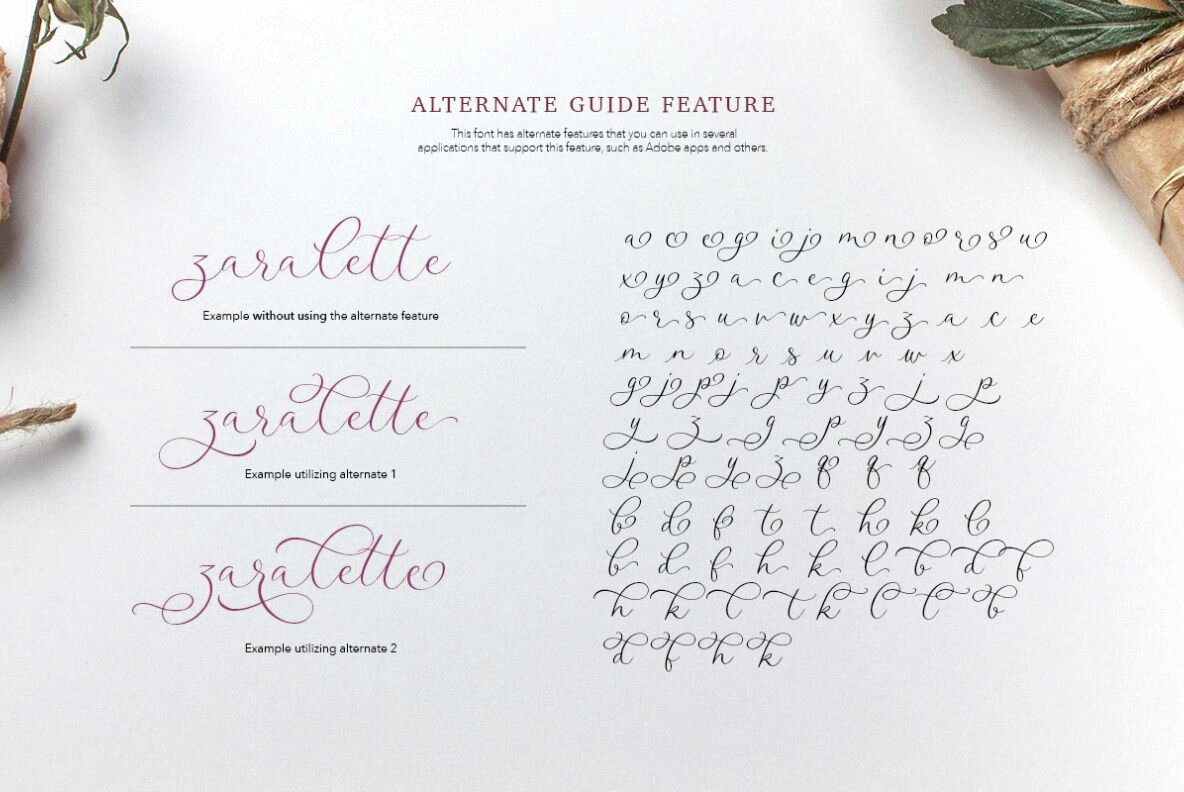 ALTERNATE GUIDE FEATURE
This font has alternate features that you can use in several
applications that support this feature, such as Adobe apps and others.
zaralette
Example without using the alternate feature
zaralette
Example utilizing alternate 1
zaralette
Example utilizing alternate 2
a c e g i j m n o r s u
x y z a c e g i j m n
o r s u v w x y z a c e
m n o r s u v w x
g j p j p y z j p
y z g p y z g
j p y z q q q
b d f t t h k l
b d f h k l b d f
h k l t k l l b
d f h k